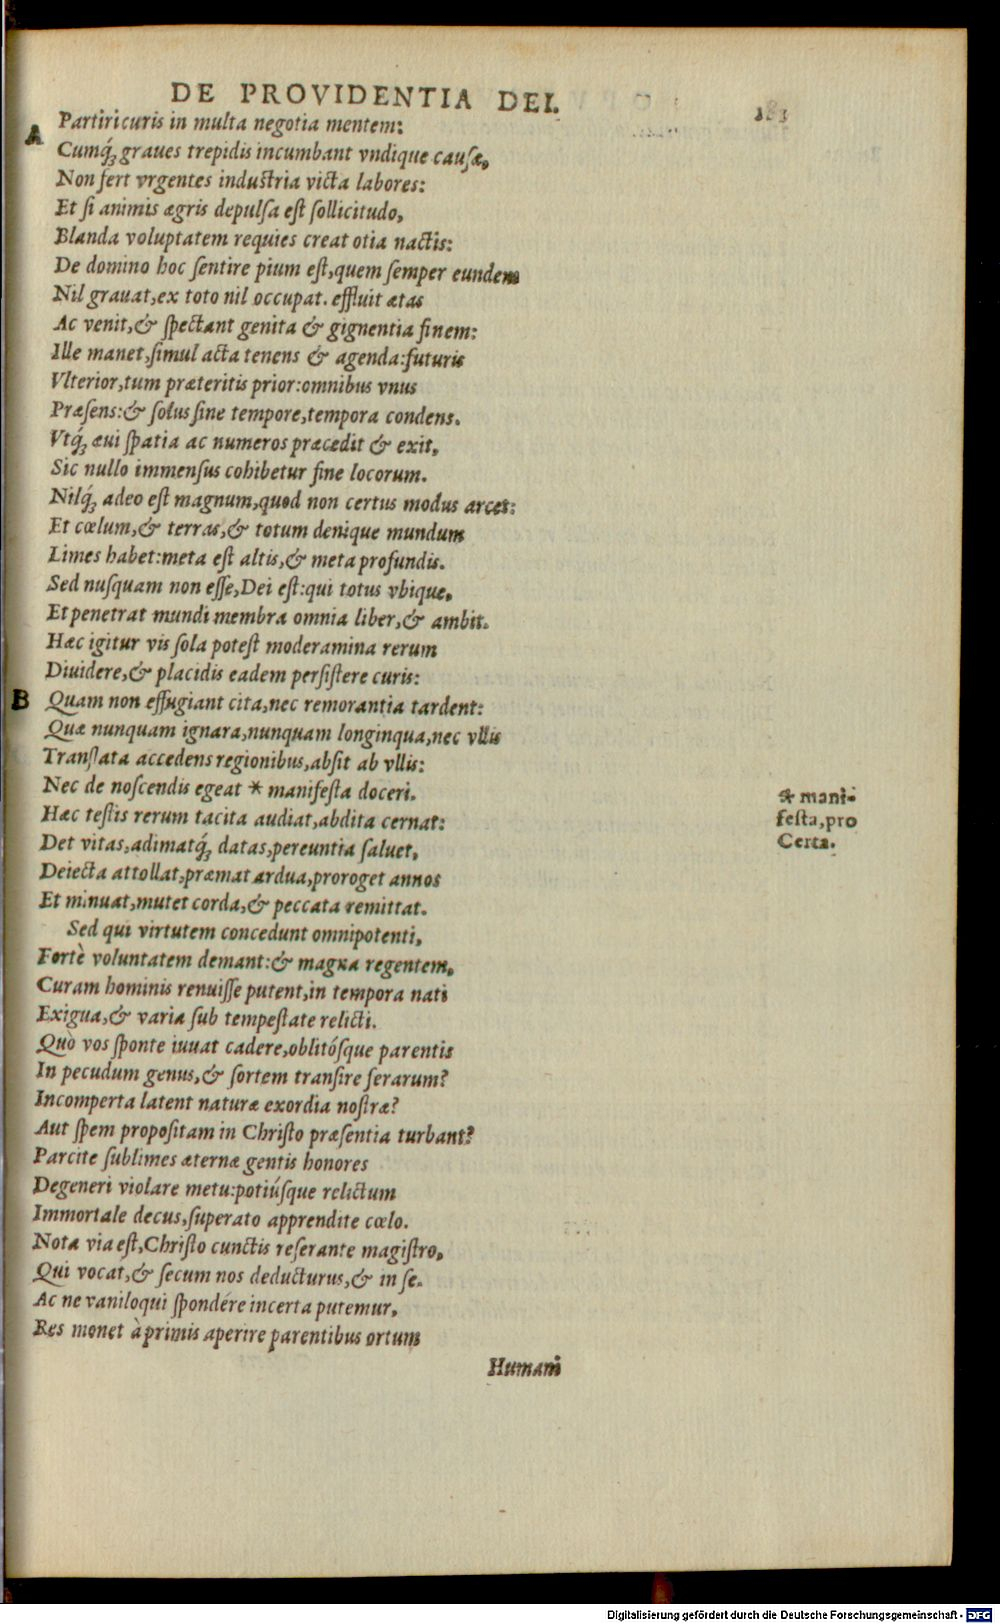 DE PROVIDENTIA DEI.
Partiri curis in multa negotia mentem:
A
Cumq́ꝫ graues trepidis incumbant vndique causæ,
Non fert vrgentes industria victa labores:
Et si animis ægris depulsa est sollicitudo,
Blanda voluptatem requies creat otia nactis:
De domino hoc sentire pium est,quem semper eundem
Nil grauat,ex toto nil occupat. effluit ætas
Ac venit,& spectant genita & gignentia finem:
Ille manet,simul acta tenens & agenda:futuris
Vlterior,tum præteritis prior:omnibus vnus
Præsens:& solus sine tempore,tempora condens.
Vtq́ꝫ æui spatia ac numeros præcedit & exit,
Sic nullo immensus cohibetur fine locorum.
Nilq́ꝫ adeo est magnum,quod non certus modus arcet:
Et cœlum,& terras,& totum denique mundum
Limes habet:meta est altis,& meta profundis.
Sed nusquam non esse,Dei est:qui totus vbique,
Et penetrat mundi membra omnia liber,& ambit.
Hæc igitur vis sola potest moderamina rerum
Diuidere,& placidis eadem persistere curis:
B Quam non effugiant cita,nec remorantia tardent:
Quæ nunquam ignara,nunquam longinqua,nec vllis
Translata accedens regionibus,absit ab vllis:
Nec de noscendis egeat * manifesta doceri.
* mani-
festa,pro
Certa.
Hæc testis rerum tacita audiat,abdita cernat:
Det vitas,adimatq́ꝫ datas,pereuntia saluet,
Deiecta attollat,præmat ardua,proroget annos
Et minuat,mutet corda,& peccata remittat.
Sed qui virtutem concedunt omnipotenti,
Fortè voluntatem demant:& magna regentem,
Curam hominis renuisse putent,in tempora nati
Exigua,& varia sub tempestate relicti.
Quò vos sponte iuuat cadere,oblitósque parentis
In pecudum genus,& sortem transire ferarum?
Incomperta latent naturæ exordia nostræ?
Aut spem propositam in Christo præsentia turbant?
Parcite sublimes æternæ gentis honores
Degeneri violare metu:potiúsque relictum
Immortale decus,superato apprendite cœlo.
Nota via est,Christo cunctis reserante magistro,
Qui vocat,& secum nos deducturus,& in se.
Ac ne vaniloqui spondére incerta putemur,
Res monet à primis aperire parentibus ortum
Humani
Digitalisierung gefördert durch die Deutsche Forschungsgemeinschaft - DFG